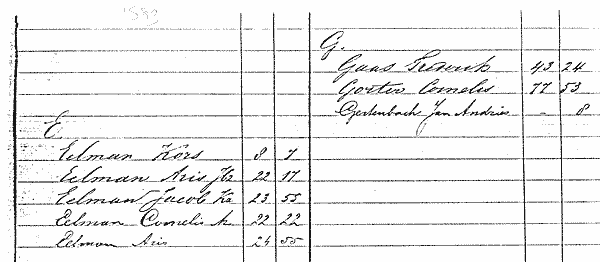 1893
E
Eelman Kors 8 7
Eelman Aris Jbz 22 17
Eelman Jacob Kz 23 55
Eelman Cornelis Az 22 22
Eelman Aris 24 55
G.
Gaas Frederik 43 24
Gorter Cornelis 77 53
Gerlenbach Jan Andries - 8